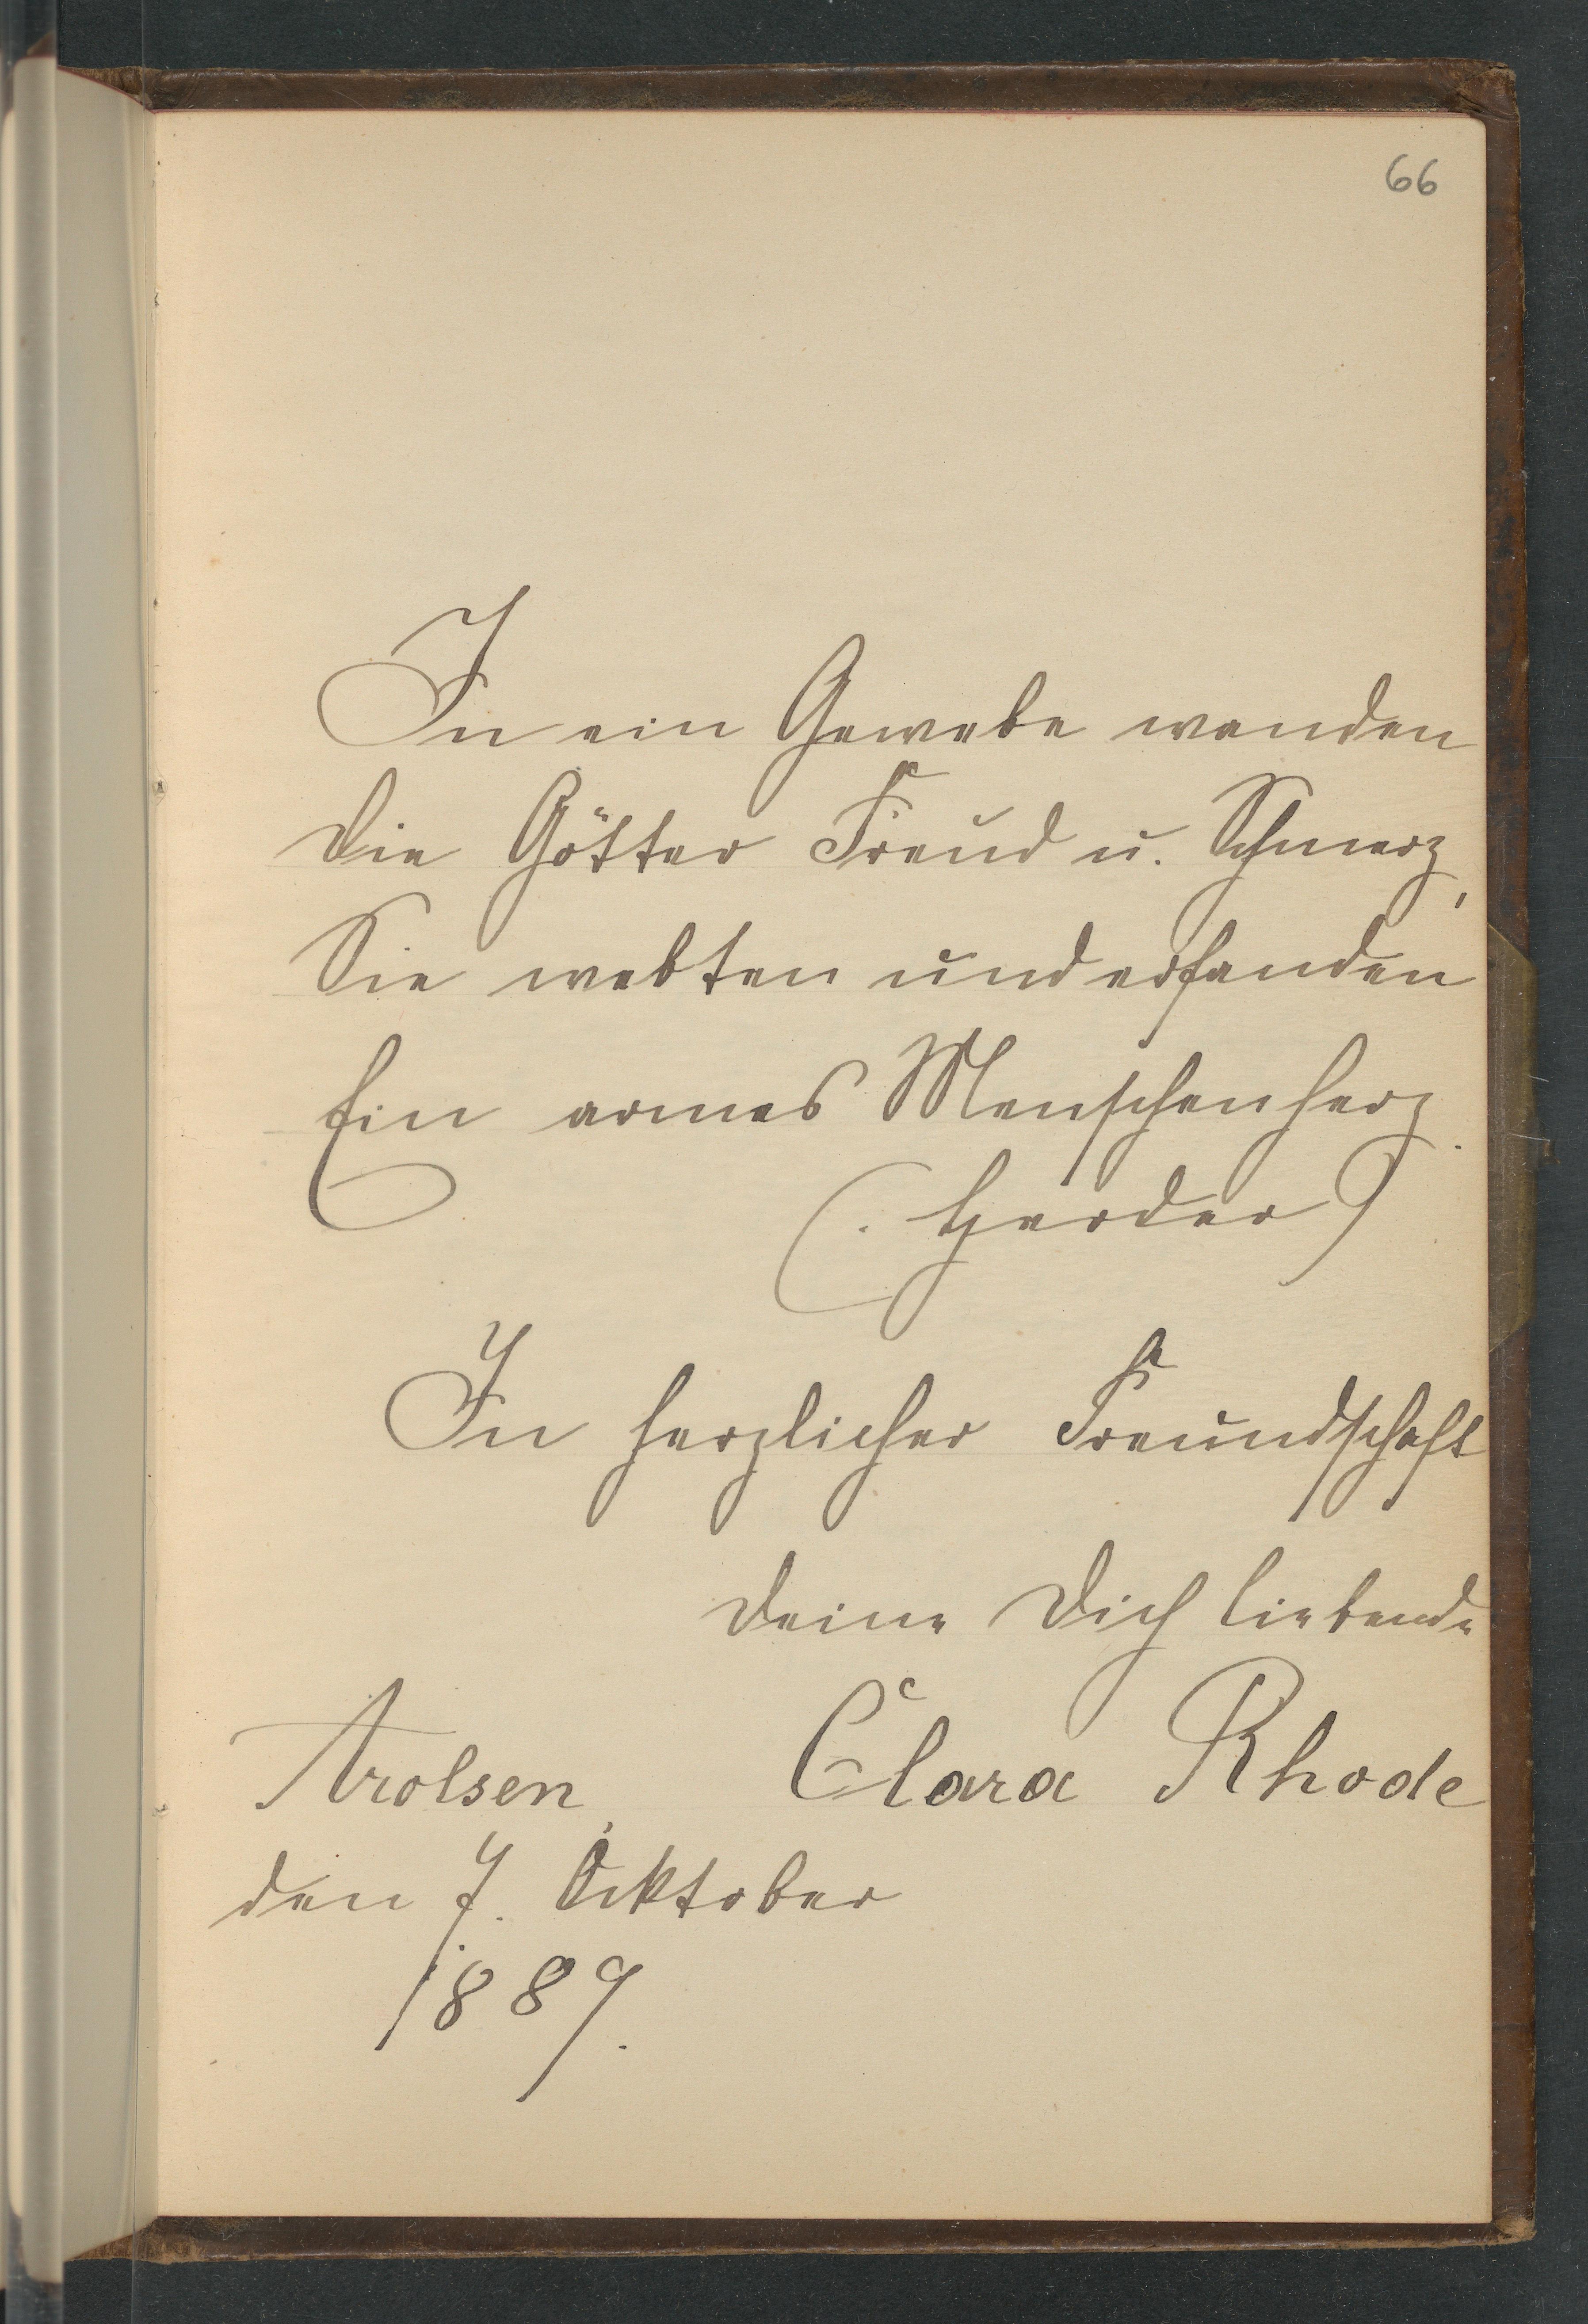 66
In ein Gewebe wanden
Die Götter Freud u. Schmerz,
Sie webten und erfanden
Ein armes Menschenherz.
(. Herder)
In herzlicher Freundschaft
Deine Dich liebende
Arolsen, Clara Rhode
den 7. Oktober
1887.